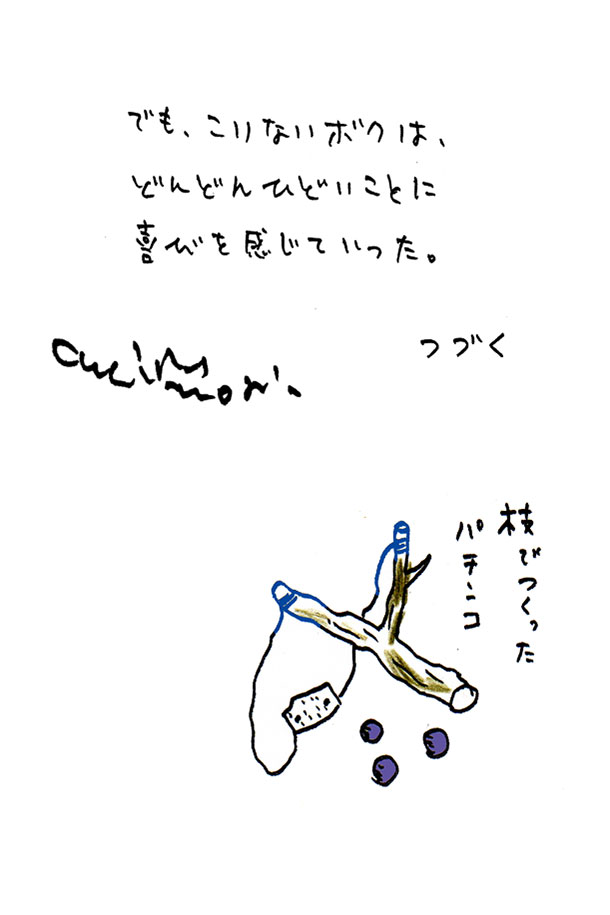 でも、こりないボクは、
どんどんひどいことに
喜びを感じていった。
つづく
枝でつくった
パチンコ